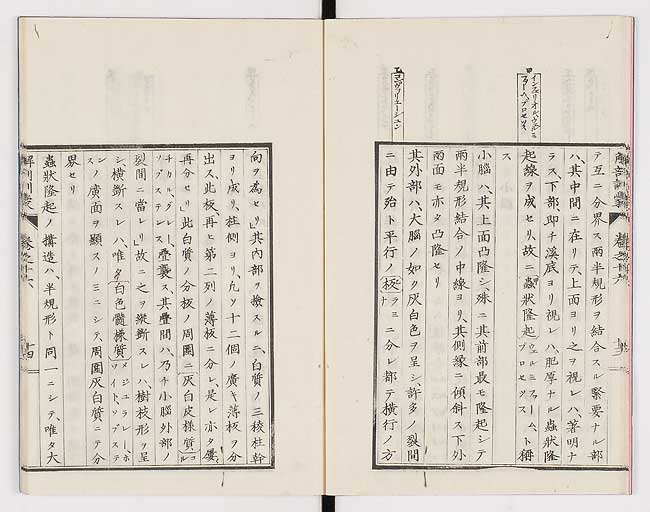 インフェリオル、ウェルミ
フォーム、プロセッス
テ互ニ分界ス兩半規形ヲ結合スル緊要ナル部
ハ、其中間ニ在リテ、上面ヨリ之ヲ視レハ、著明ナ
ラス、下部即チ溪底ヨリ視レハ、肥厚ナル蟲狀隆
起線ヲ成セリ、故ニ蟲狀隆起ウェルミフォーム、プロセッスト稱
ス
小腦ハ、其上面凸隆シ、殊ニ其前部最モ隆起シテ
兩半規形結合ノ中線ヨリ、其側緣ニ傾斜ス下外
兩面モ亦タ凸隆セリ
其外部ハ、大腦ノ如ク灰白色ヲ呈シ、許多ノ裂間
ニ由テ殆ト平行ノ板ラミナニ分レ都テ橫行ノ方
コンヴヲリューシュン
向ヲ為セリ」其内部ヲ檢スルニ、白質ノ三稜柱幹
ヨリ成リ、柱側ヨリ、凡ソ十二個ノ廣キ薄板ヲ分
出ス、此板、再ヒ第二列ノ薄板ニ分レ、是レ亦タ屢
再分セリ」此白質ノ分板ノ周圍ニ、灰白皮樣質コル
チカル、グレー、ソブステンス疊襲ス、其疊間ハ、乃チ小腦外部ノ
裂間ニ當レリ」故ニ之ヲ縱斷スレハ、樹枝形ヲ呈
シ、橫斷スレハ、唯タ白色髓樣質メジュラレー、ホワイト、ソブステンス
ノ廣面ヲ顯スノミニシテ、周圍灰白質ニテ分
界セリ
蟲狀隆起ノ搆造ハ、半規形ト同一ニシテ、唯タ大
解剖訓蒙
卷之十六
十四